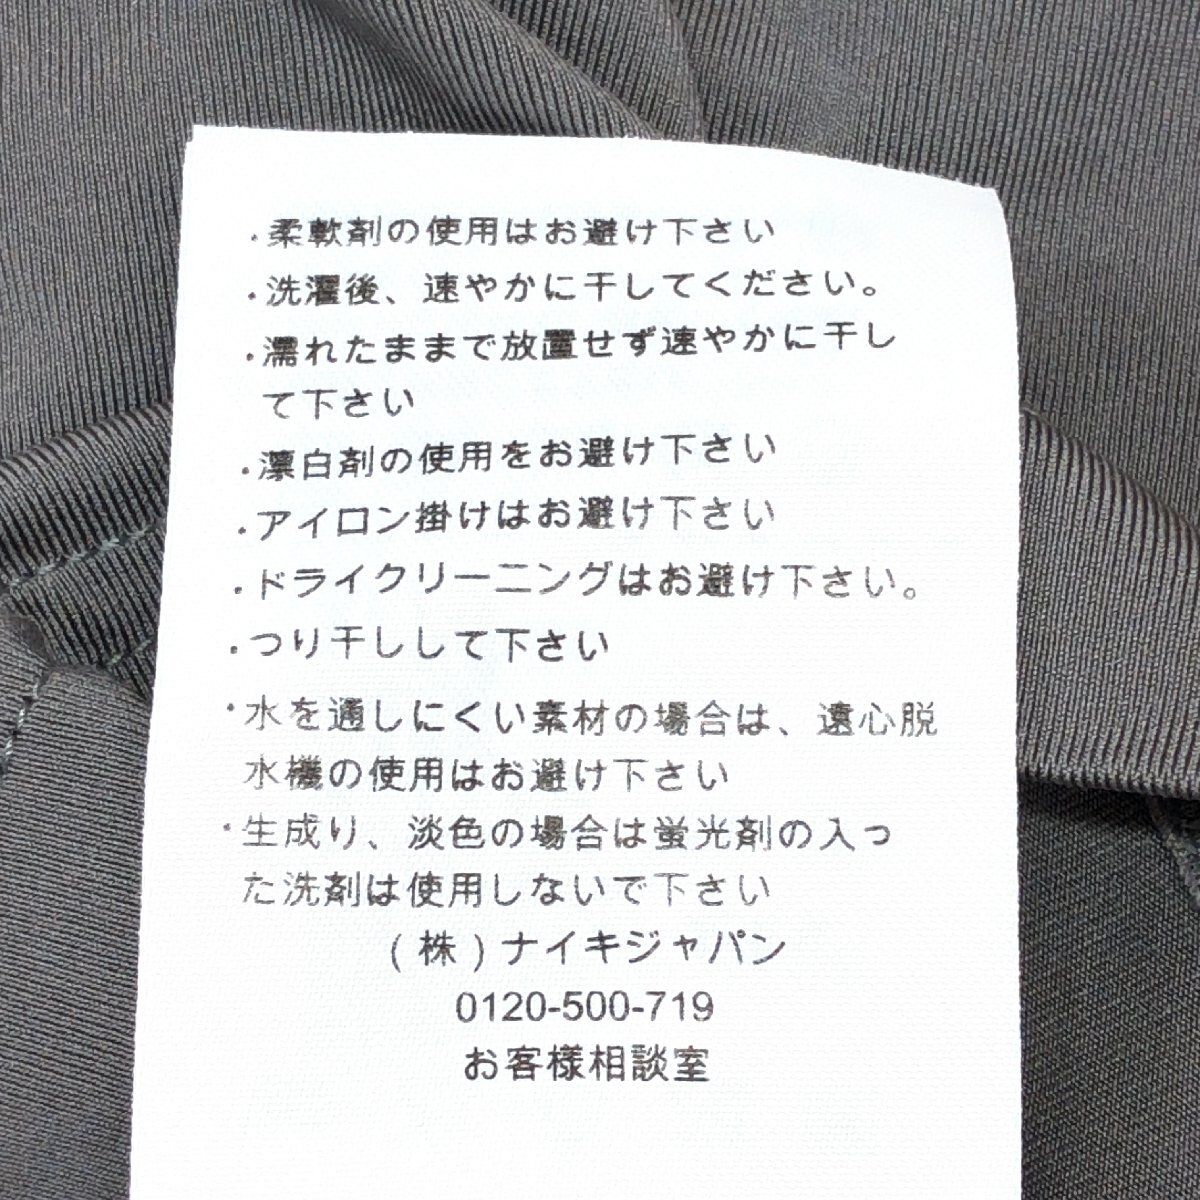 ・柔軟剤の使用はお避け下さい
・洗濯後、速やかに干してください。
・濡れたままで放置せず速やかに干し
て下さい
・漂白剤の使用をお避け下さい
・アイロン掛けはお避け下さい
・ドライクリーニングはお避け下さい。
・つり干しして下さい
・水を通しにくい素材の場合は、遠心脱
水機の使用はお避け下さい
・生成り、淡色の場合は蛍光剤の入っ
た洗剤は使用しないで下さい
(株)ナイキジャパン
0120-500-719
お客様相談室